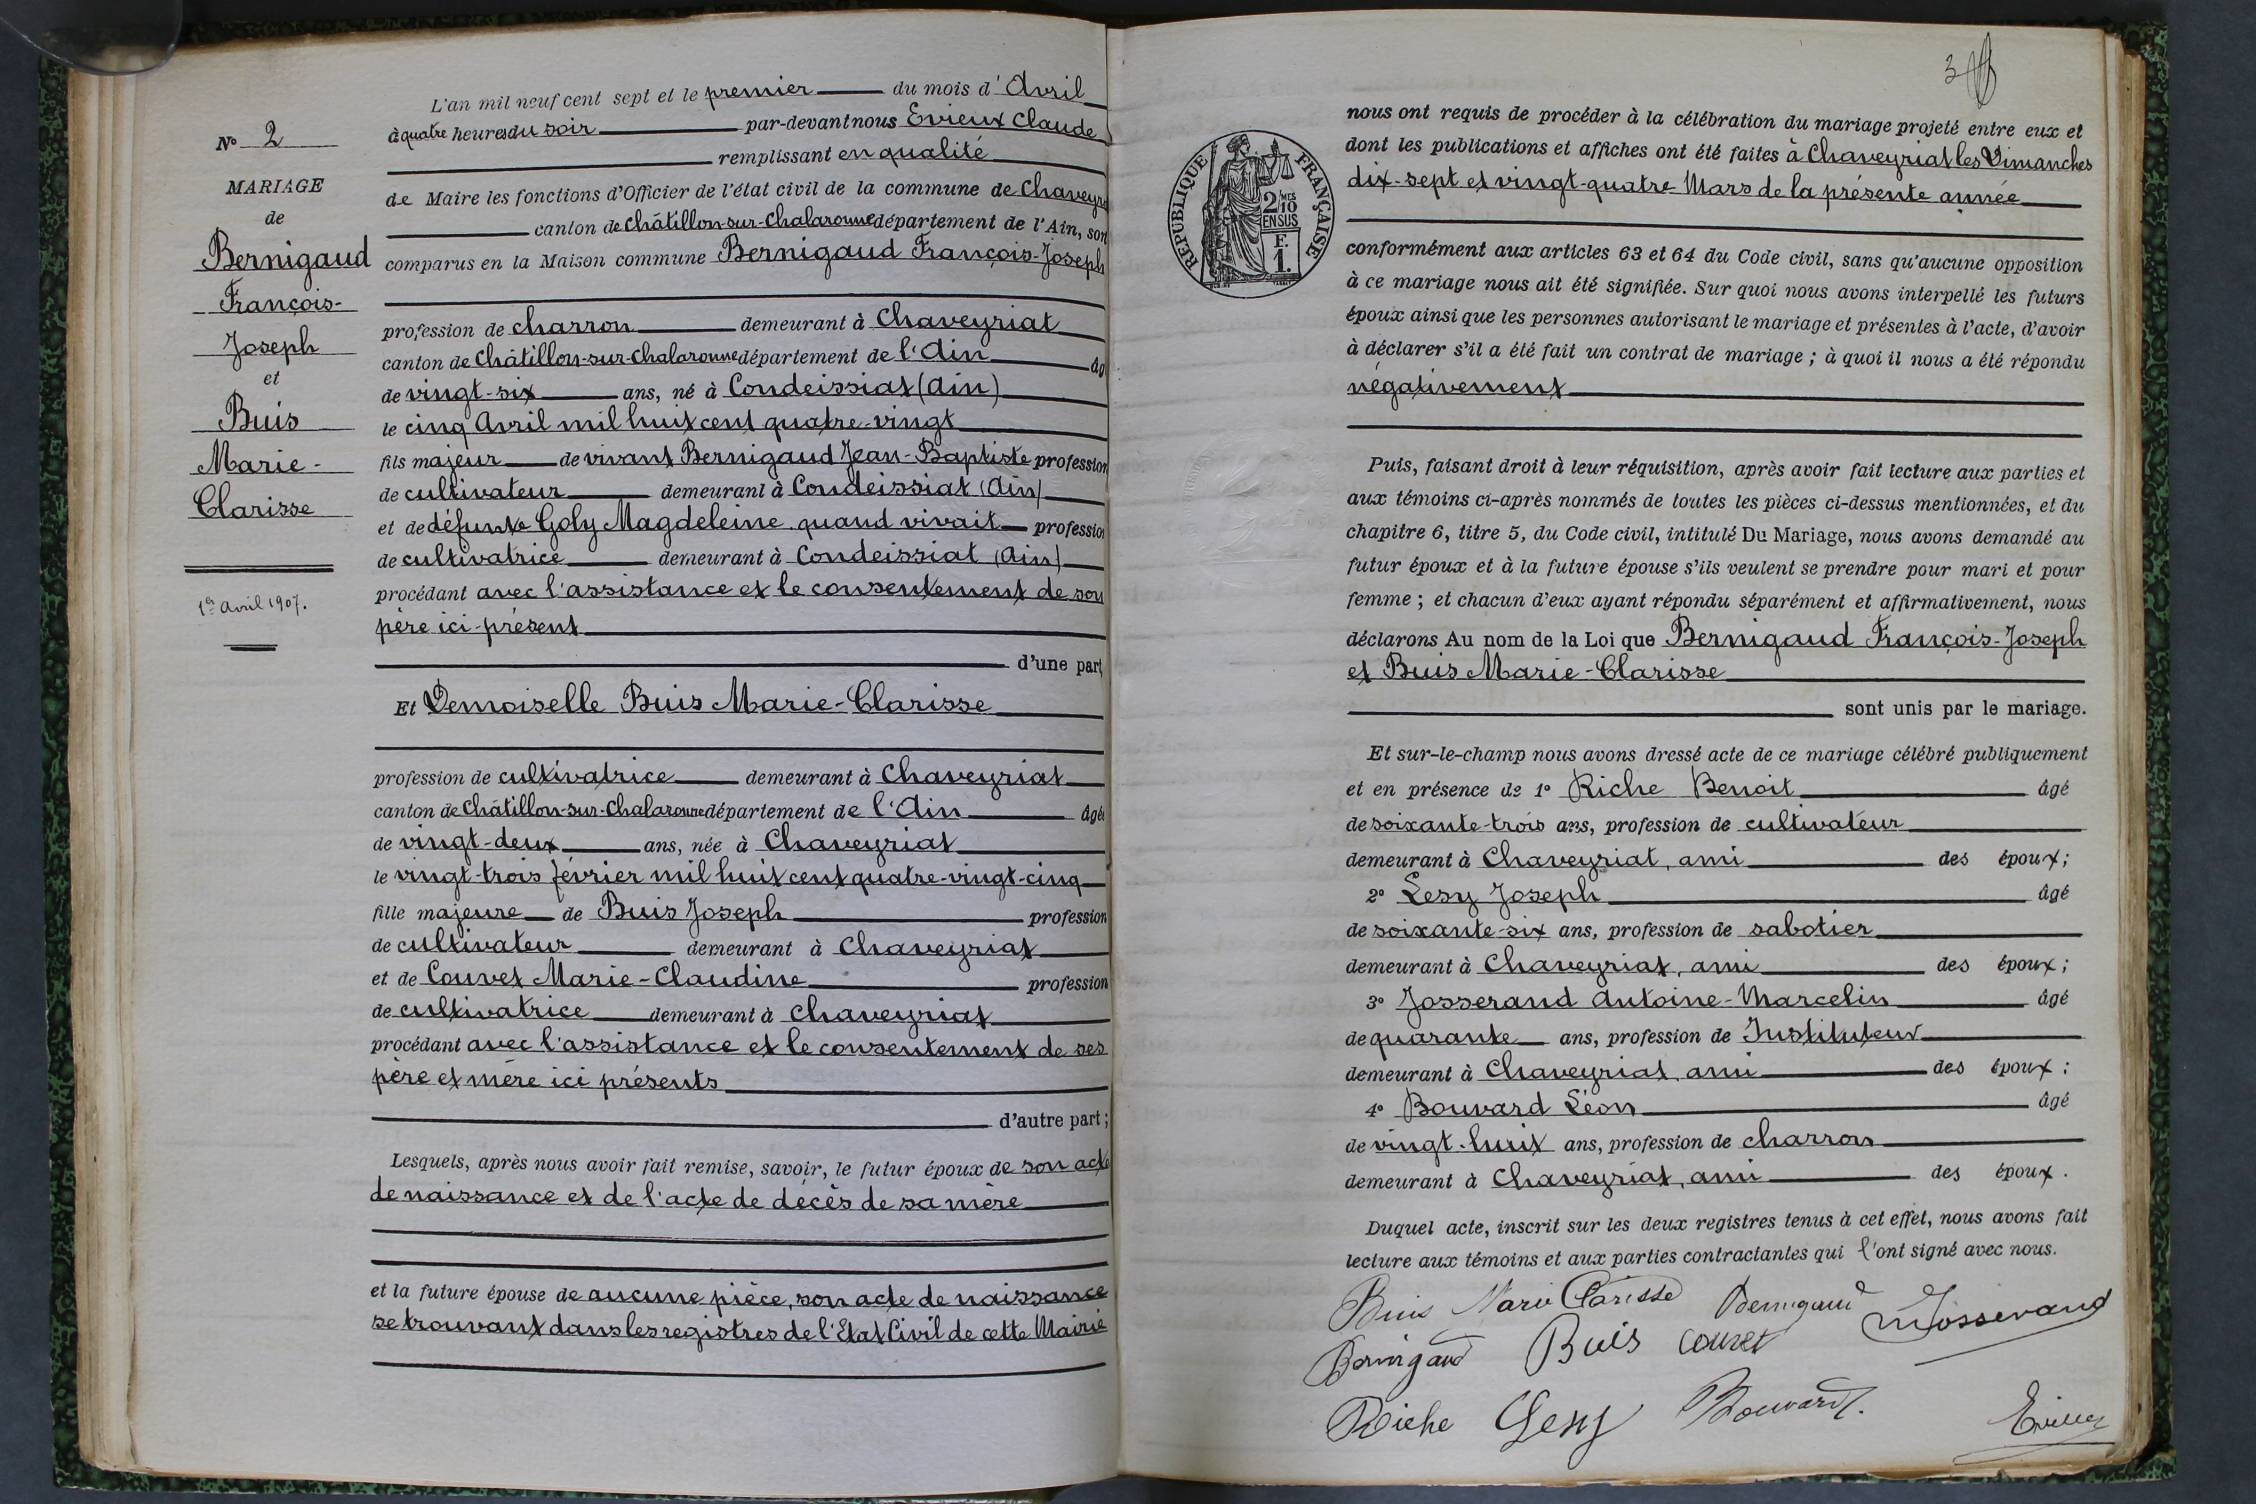 N° 2
MARIAGE
de
Bernigaud
François-
Joseph
et
Buis
Marie-
Clarisse
1er avril 1907.
L'an mil neuf cent sept et le premier du mois d' Avril
à quatre heures du soir par-devant nous Evieux Claude
remplissant en qualité
de Maire les fonctions d'Officier de l'état civil de la commune de Chaveyria
canton de Châtillon-sur-Chalaronne département de l'Ain, son
comparus en la Maison commune Bernigaud François-Joseph
profession de charron demeurant à Chaveyriat
canton de Châtillon-sur-Chalaronne département de l'Ain âg
de vingt-six ans, né à Condeissiat (Ain)
le cinq Avril mil huit cent quatre-vingt
fils majeur de vivant Bernigaud Jean-Baptiste profession
de cultivateur demeurant à Condeissiat (Ain)
et de défunte Goly Magdeleine quand vivait profession
de cultivatrice demeurant à Condeissiat (Ain)
procédant avec l'assistance et le consentement de son
père ici-présent
d'une part
Et Demoiselle Buis Marie-Clarisse
profession de cultivatrice demeurant à Chaveyriat
canton de Châtillon-sur-Chalaronne département de l'Ain âgée
de vingt-deux ans, née à Chaveyriat
le vingt-trois février mil huit cent quatre-vingt-cinq
fille majeure de Buis Joseph profession
de cultivateur demeurant à Chaveyriat
et de Couvet Marie-Claudine profession
de cultivatrice demeurant à Chaveyriat
procédant avec l'assistance et le consentement de ses
père et mère ici présents
d'autre part ;
Lesquels, après nous avoir fait remise, savoir, le futur époux de son acte
de naissance et de l'acte de décès de sa mère
et la future épouse de aucune pièce, son acte de naissance
se trouvant dans les registres de l'Etat Civil de cette Mairie
3
RÉPUBLIQUE FRANÇAISE
2/10 MES
EN SUS
F.
1.
nous ont requis de procéder à la célébration du mariage projeté entre eux et
dont les publications et affiches ont été faites à Chaveyriat les Dimanches
dix-sept et vingt-quatre Mars de la présente année
conformément aux articles 63 et 64 du Code civil, sans qu'aucune opposition
à ce mariage nous ait été signifiée. Sur quoi nous avons interpellé les futurs
époux ainsi que les personnes autorisant le mariage et présentes à l'acte, d'avoir
à déclarer s'il a été fait un contrat de mariage ; à quoi il nous a été répondu
négativement
Puis, faisant droit à leur réquisition, après avoir fait lecture aux parties et
aux témoins ci-après nommés de toutes les pièces ci-dessus mentionnées, et du
chapitre 6, titre 5, du Code civil, intitulé Du Mariage, nous avons demandé au
futur époux et à la future épouse s'ils veulent se prendre pour mari et pour
femme ; et chacun d'eux ayant répondu séparément et affirmativement, nous
déclarons Au nom de la Loi que Bernigaud François-Joseph
et Buis Marie-Clarisse
sont unis par le mariage.
Et sur-le-champ nous avons dressé acte de ce mariage célébré publiquement
et en présence de 1° Riche Benoit âgé
de soixante-trois ans, profession de cultivateur
demeurant à Chaveyriat, ami des époux ;
2° Lesy Joseph âgé
de soixante-six ans, profession de sabotier
demeurant à Chaveyriat, ami des époux ;
3° Josserand Antoine-Marcelin âgé
de quarante ans, profession de Instituteur
demeurant à Chaveyriat, ami des époux ;
4° Bouvard Léon âgé
de vingt-huit ans, profession de charron
demeurant à Chaveyriat, ami des époux.
Duquel acte, inscrit sur les deux registres tenus à cet effet, nous avons fait
lecture aux témoins et aux parties contractantes qui l'ont signé avec nous.
Buis Marie Clarisse Bernigaud Josserand
Bernigaud Buis Couvet
Riche Lesy Bouvard. Evieux